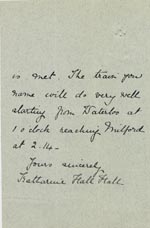 is met. The train you
name will do very well
starting from Waterloo at
1 o'clock reaching Milford
at 2.14-
Yours sincerely,
Katharine Hall Hall